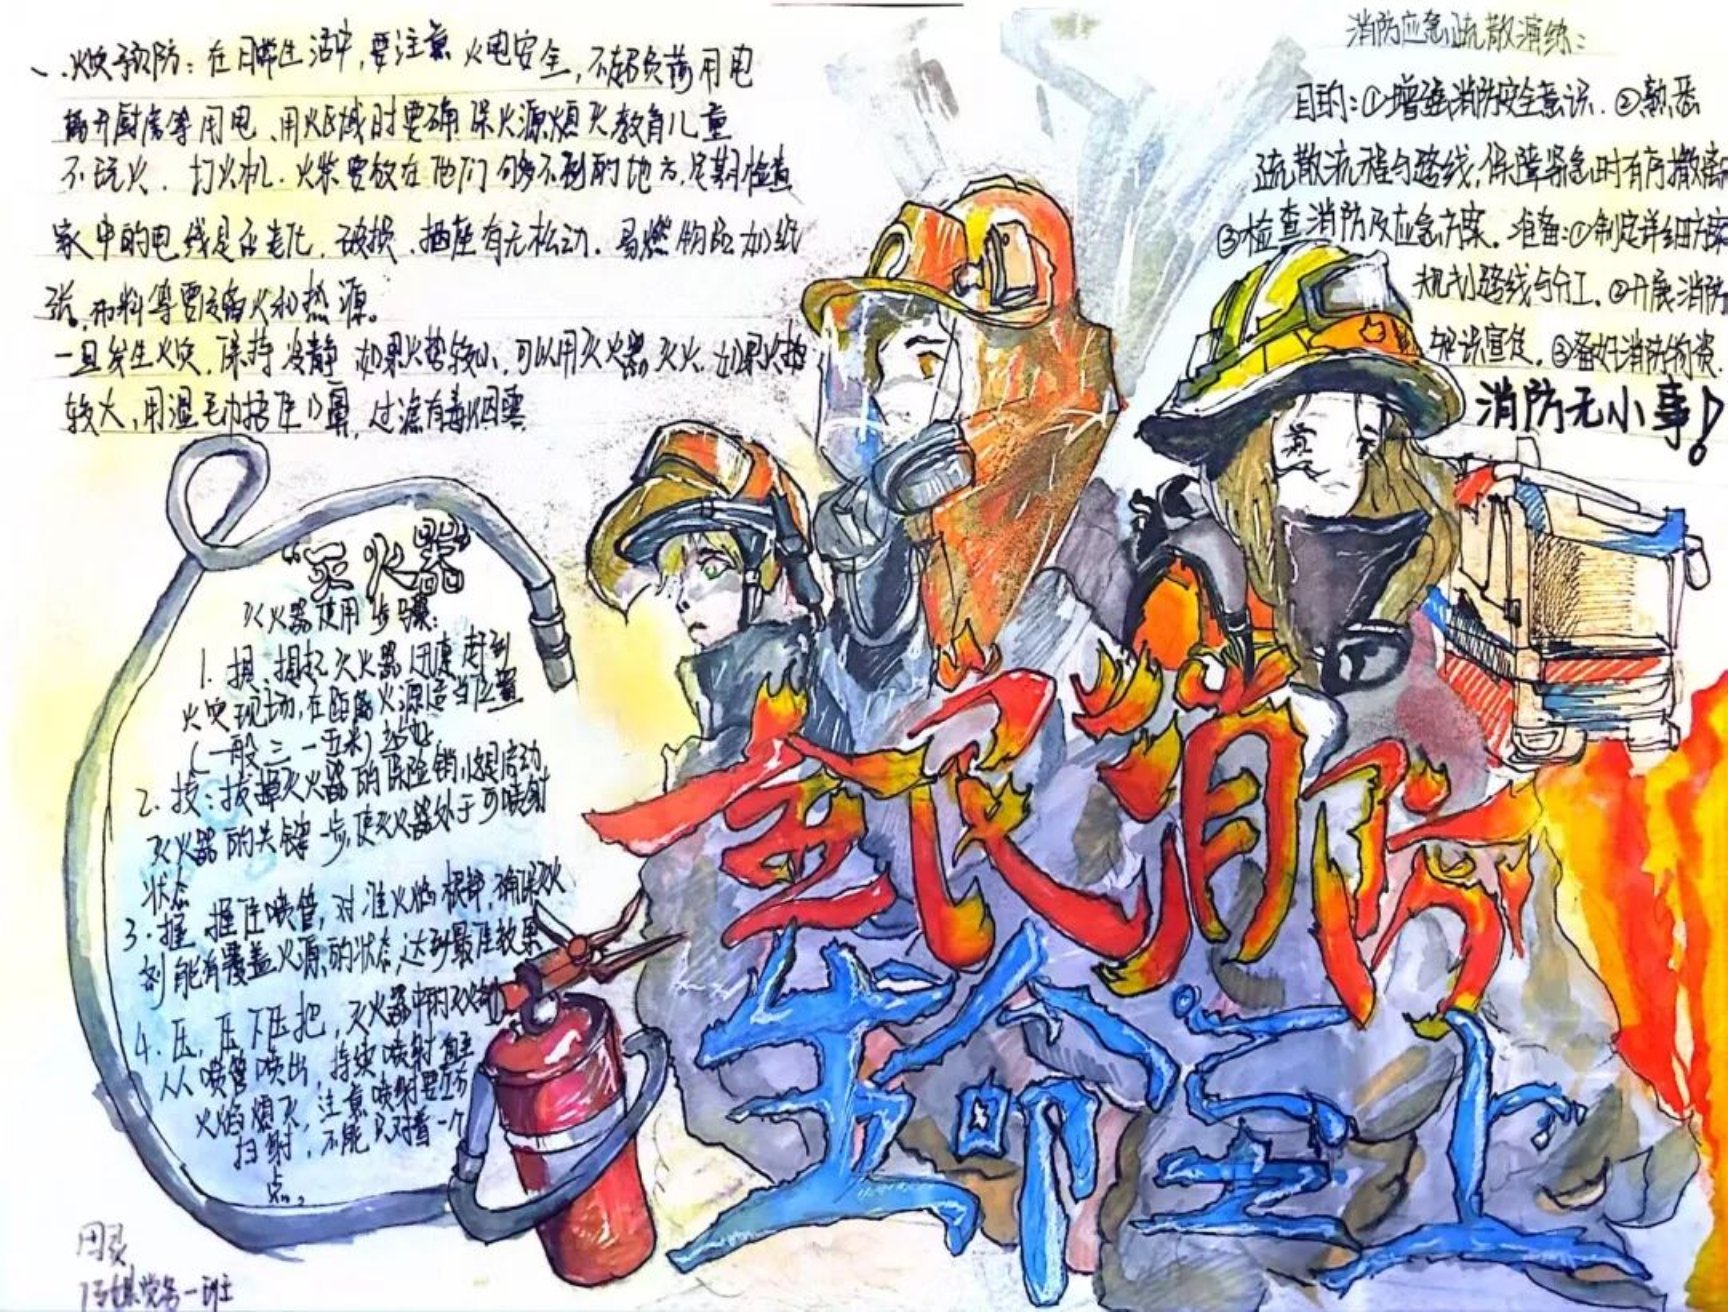 一、火灾预防：在日常生活中，要注意火电安全，不超负荷用电
离开厨房等用电、用火区域时要确保火源熄灭教育儿童
不玩火、打火机、火柴要放在他们够不到的地方，定期检查
家中的电线是否老化、破损、插座有无松动。易燃物品如纸
张、布料等要远离火和热源。
一旦发生火灾，保持冷静 如果火势较小，可以用灭火器灭火，如果火势
较大，用湿毛巾捂住口鼻，过滤有毒烟雾
消防应急疏散演练：
目的：①增强消防安全意识．②熟悉
疏散流程与路线，保障紧急时有序撤离
③检查消防及应急方案。准备：①制定详细方案
规划路线与分工。②开展消防
知识宣传。③备好消防物资．
消防无小事！
“灭火器”
灭火器使用步骤：
1．提、提起灭火器迅速赶到
火灾现场，在距离火源适当位置
（一般三一五米）
2．拔：拔掉灭火器的保险销，这是启动
灭火器的关键一步，使灭火器处于可喷射
状态
3．握，握住喷管，对准火焰根部，确保灭火
剂能有覆盖火源的状态，达到最佳效果
4．压，压下压把，灭火器中的灭火剂
从喷管喷出，持续喷射直至
火焰熄灭，注意喷射要左右
扫射，不能只对着一个
点。
全民消防
生命至上